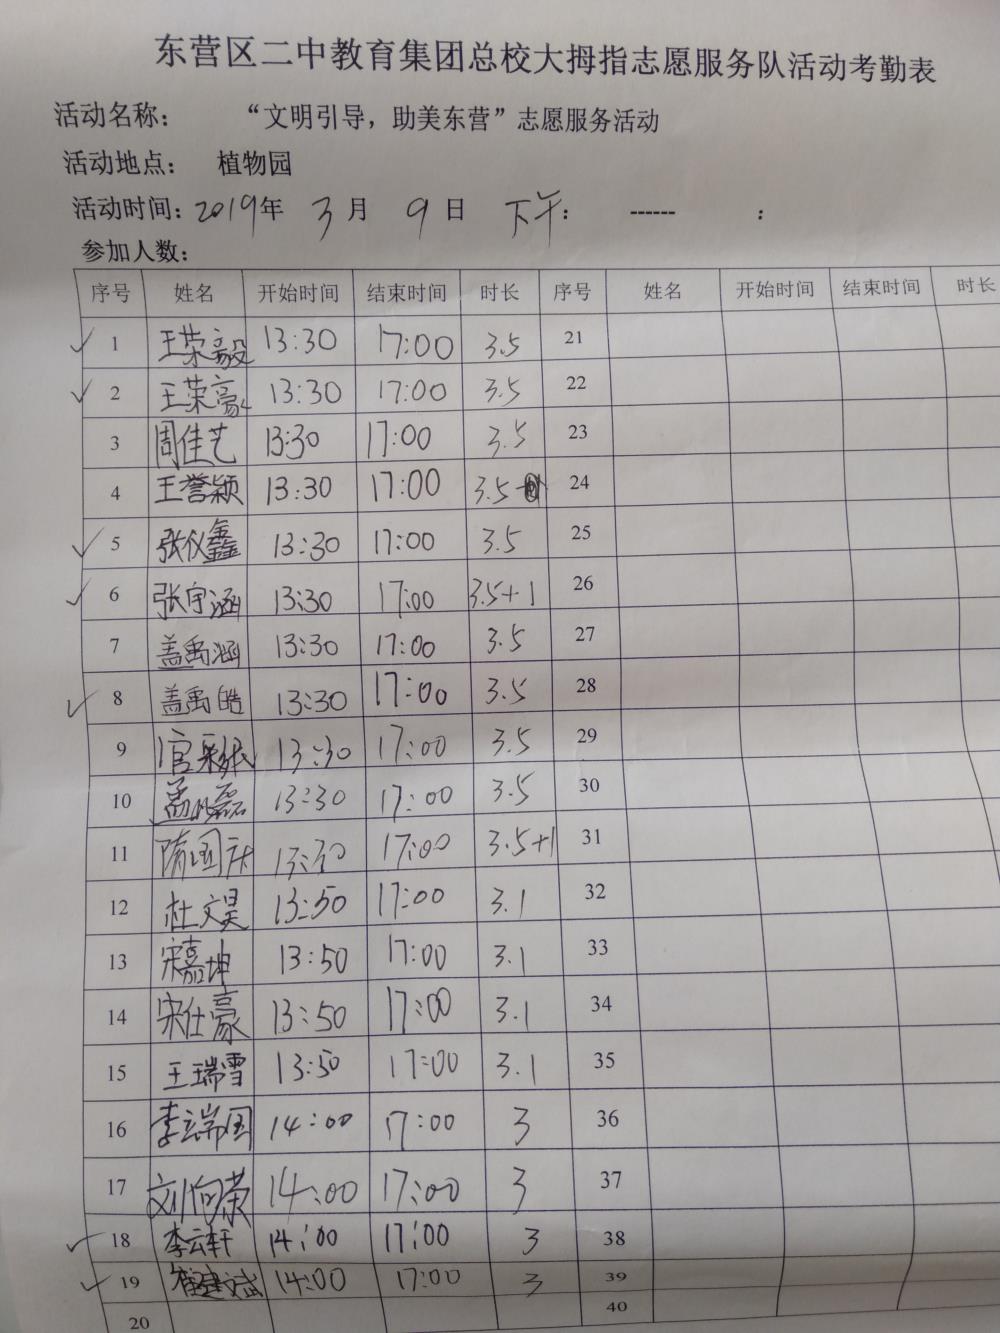 东营区二中教育集团总校大拇指志愿服务队活动考勤表
活动名称： “文明引导，助美东营”志愿服务活动
活动地点： 植物园
活动时间：2019年 3月 9日 下午： ------ ：
参加人数：
序号 姓名 开始时间 结束时间 时长 序号 姓名 开始时间 结束时间 时长
1 王荣毅 13:30 17:00 3.5 21
2 王荣豪 13:30 17:00 3.5 22
3 周佳艺 13:30 17:00 3.5 23
4 王誉颖 13:30 17:00 3.5 24
5 张仪鑫 13:30 17:00 3.5 25
6 张宇涵 13:30 17:00 3.5+1 26
7 盖禹涵 13:30 17:00 3.5 27
8 盖禹皓 13:30 17:00 3.5 28
9 13:30 17:00 3.5 29
10 孟 磊 13:30 17:00 3.5 30
11 隋国庆 13:30 17:00 3.5+1 31
12 杜文昊 13:50 17:00 3.1 32
13 宋嘉坤 13:50 17:00 3.1 33
14 宋仕豪 13:50 17:00 3.1 34
15 王瑞雪 13:50 17:00 3.1 35
16 李云端国 14:00 17:00 3 36
17 刘向荣 14:00 17:00 3 37
18 李云轩 14:00 17:00 3 38
19 崔建斌 14:00 17:00 3 39
20 40